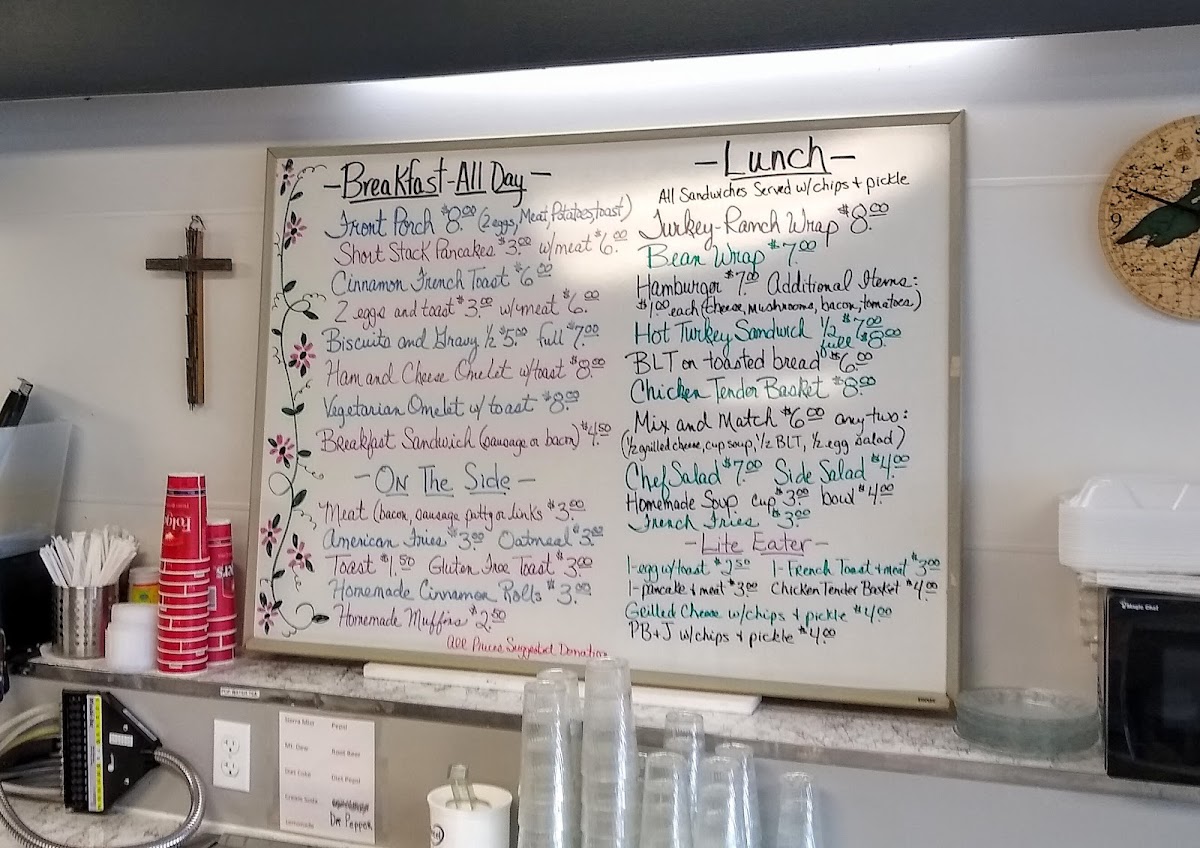 -Breakfast-All Day-
Front Porch $8.00 (2 eggs, Meat, Potatoes, toast)
Short Stack Pancakes $3.00 w/meat $6.00
Cinnamon French Toast $6.00
2 eggs and toast $3.00 w/meat $6.00
Biscuits and Gravy ½ $5.00 full $7.00
Ham and Cheese Omelet w/toast $8.00
Vegetarian Omelet w/ toast $8.00
Breakfast Sandwich (sausage or bacon) $4.50
-On The Side-
Meat (bacon, sausage patty or links $3.00
American Fries $3.00 Oatmeal $3.00
Toast $1.50 Gluten Free Toast $3.00
Homemade Cinnamon Rolls $3.00
Homemade Muffins $2.50
All Prices Suggested Donation
-Lunch-
All Sandwiches Served w/chips + pickle
Turkey-Ranch Wrap $8.00
Bean Wrap $7.00
Hamburger $7.00 Additional Items:
$1.00 each (cheese, mushrooms, bacon, tomatoes)
Hot Turkey Sandwich ½ $7.00
full $8.00
BLT on toasted bread $6.00
Chicken Tender Basket $8.00
Mix and Match $6.00 any two:
(½ grilled cheese, cup soup, ½ BLT, ½ egg salad)
Chef Salad $7.00 Side Salad $4.00
Homemade Soup cup $3.00 bowl $4.00
French Fries $3.00
-Lite Eater-
1-egg w/toast $2.50 1-French Toast + meat $3.00
1-pancake + meat $3.00 Chicken Tender Basket $4.00
Grilled Cheese w/chips + pickle $4.00
PB+J w/chips + pickle $4.00
9
Folgers
Magic Chef
Sierra Mist Pepsi
Mt. Dew Root Beer
Diet Coke Diet Pepsi
Cream Soda
Lemonade Dr Pepper